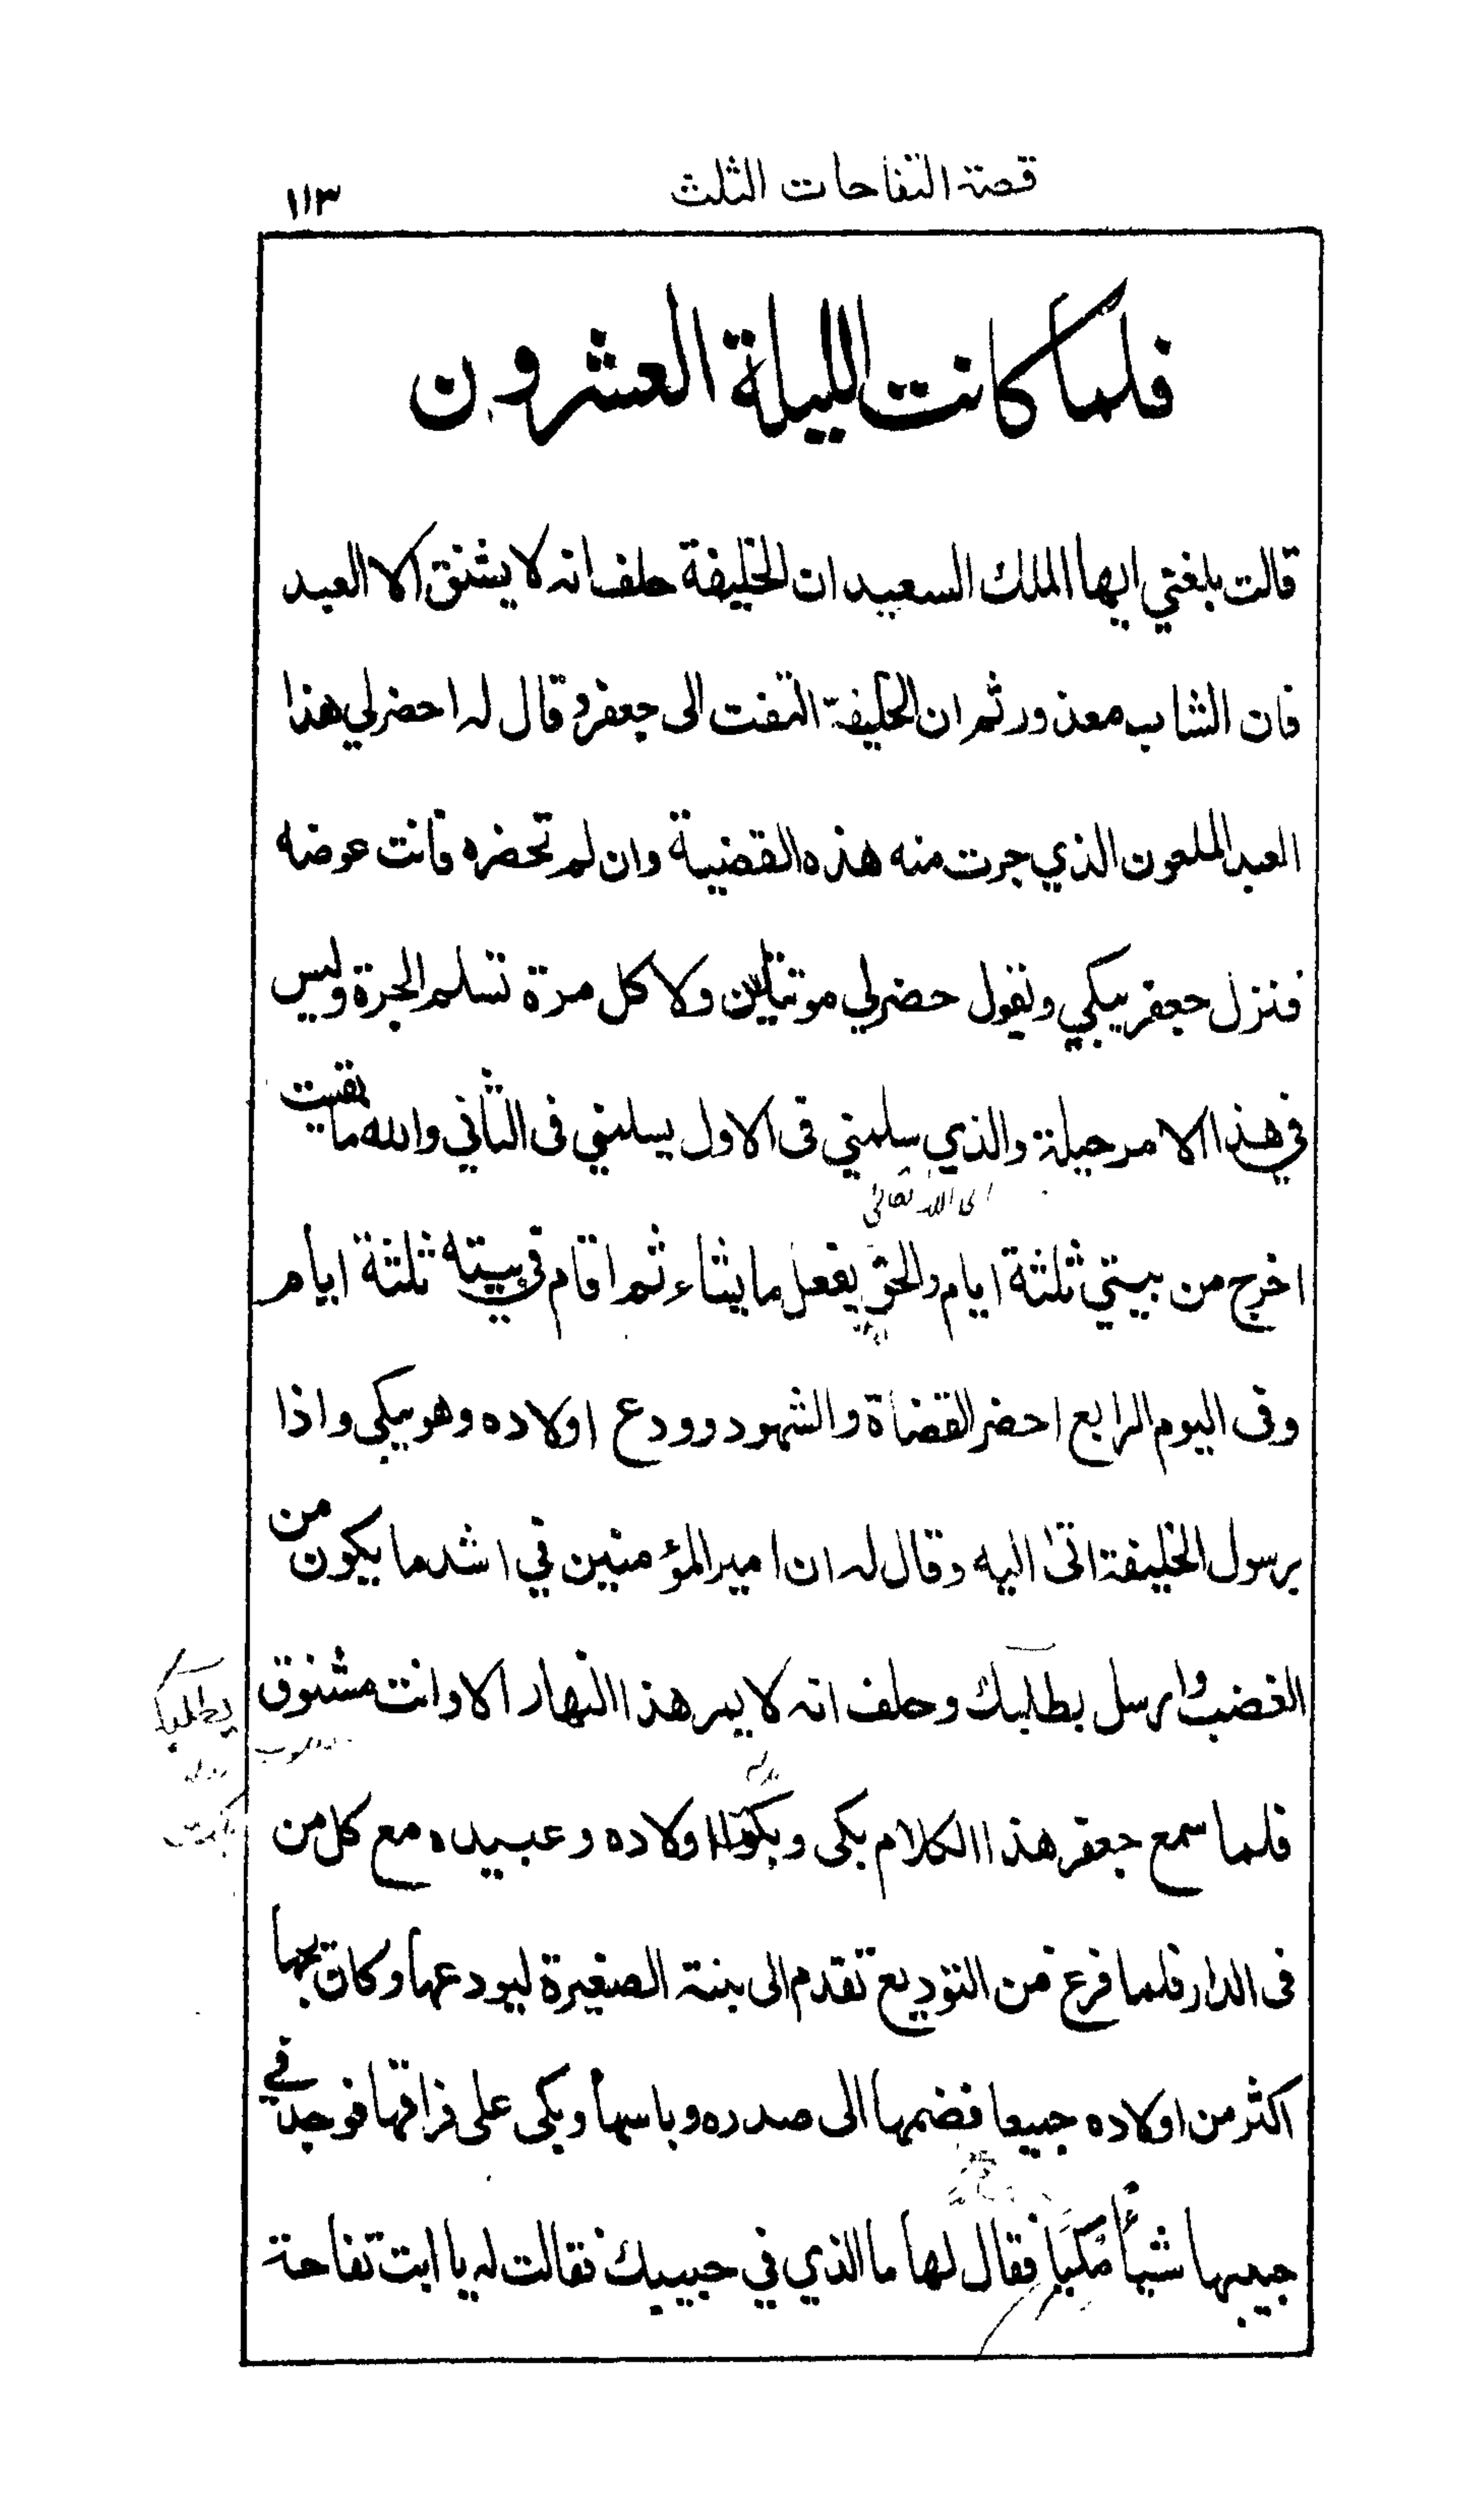 قصة التفاحات الثلث
١١٣
فلما كانت الليلة العشرون
قالت بلغني ايها الملك السعيد ان الخليفة حلف انه لا يشنق الا العبد
فان الشاب معذور ثم ان الخليفة التفت الى جعفر وقال له احضر لي هذا
العبد الملعون الذي جرت منه هذه القضية وان لم تحضره فانت عوضه
فنزل جعفر يبكي ويقول حضر لي موتتان ولا كل مرة تسلم الجرة وليس
في هذا الامر حيلة والذي سلمني في الاول يسلمني في الثاني والله ما بقيت
الى الله تعالى
اخرج من بيتي ثلثة ايام والحق يفعل ما يشاء ثم اقام في بيته ثلثة ايام
وفى اليوم الرابع احضر القضاة والشهود وودع اولاده وهو يبكى واذا
برسول الخليفة اتى اليه وقال له ان امير المؤمنين في اشد ما يكون من
الغضب وارسل بطلبك وحلف انه لا يمر هذا النهار الا وانت مشنوق
فلما سمع جعفر هذا الكلام بكى وبكوا اولاده وعبيده مع كل من
فى الدار فلما فرغ من التوديع تقدم الى بنته الصغيرة ليودعها وكان يحبها
اكثر من اولاده جميعا فضمها الى صدره وباسها وبكى على فراقها فوجد في
جيبها شيأ مكببا فقال لها ما الذي في جيبك فقالت له يا ابت تفاحة